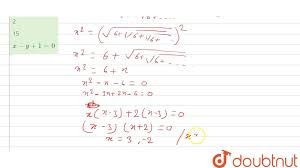 2
15
x - y + 1 = 0
x² = (√6+√6+√6+ ....)²
x² = 6 + √6+√6+ ....
x² = 6 + x
x² - x - 6 = 0
x² - 3x + 2x - 6 = 0
x (x-3) + 2 (x-3) = 0
(x-3) (x+2) = 0
x = 3, -2
doubtnut